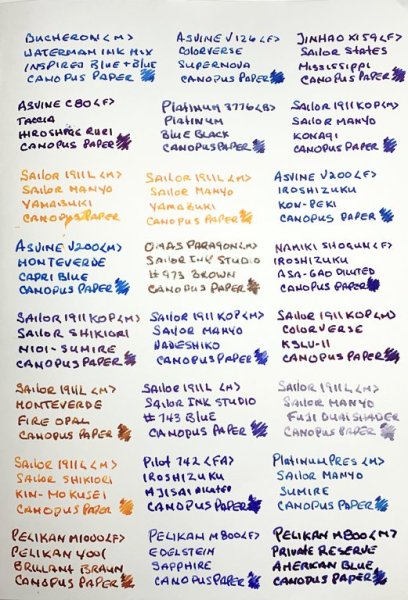 BUCHERON <M>
WATERMAN INK MIX
INSPIRED BLUE + BLUE
CANOPUS PAPER
ASVINE V126 <F>
COLORVERSE
SUPERNOVA
CANOPUS PAPER
JINHAO X159 <F>
SAILOR STATES
MISSISSIPPI
CANOPUS PAPER
ASVINE C80 <F>
TACCIA
HIROSHIGE RURI
CANOPUS PAPER
PLATINUM 3776 <B>
PLATINUM
BLUE BLACK
CANOPUS PAPER
SAILOR 1911 KOP <M>
SAILOR MANYO
KONAGI
CANOPUS PAPER
SAILOR 1911L <M>
SAILOR MANYO
YAMABUKI
CANOPUS PAPER
SAILOR 1911L <M>
SAILOR MANYO
YAMABUKI
CANOPUS PAPER
ASVINE V200 <F>
IROSHIZUKU
KON-PEKI
CANOPUS PAPER
ASVINE V200 <M>
MONTEVERDE
CAPRI BLUE
CANOPUS PAPER
OMAS PARAGON <M>
SAILOR INK STUDIO
#973 BROWN
CANOPUS PAPER
NAMIKI SHOGUN <F>
IROSHIZUKU
ASA-GAO DILUTED
CANOPUS PAPER
SAILOR 1911 KOP <M>
SAILOR SHIKIORI
NIOI-SUMIRE
CANOPUS PAPER
SAILOR 1911 KOP <M>
SAILOR MANYO
NADESHIKO
CANOPUS PAPER
SAILOR 1911 KOP <M>
COLORVERSE
CANOPUS PAPER
SAILOR 1911L <M>
MONTEVERDE
FIRE OPAL
CANOPUS PAPER
SAILOR 1911L <M>
SAILOR INK STUDIO
#743 BLUE
CANOPUS PAPER
SAILOR 1911L <M>
SAILOR MANYO
FUJI
CANOPUS PAPER
SAILOR 1911L <M>
SAILOR SHIKIORI
KIN-MOKUSEI
CANOPUS PAPER
PILOT 742 <FA>
IROSHIZUKU
AJISAI DILUTED
CANOPUS PAPER
PLATINUM PRES <M>
SAILOR MANYO
SUMIRE
CANOPUS PAPER
PELIKAN M1000 <F>
PELIKAN 4001
BRILLANT BRAUN
CANOPUS PAPER
PELIKAN M800 <F>
EDELSTEIN
SAPPHIRE
CANOPUS PAPER
PELIKAN M800 <M>
PRIVATE RESERVE
AMERICAN BLUE
CANOPUS PAPER